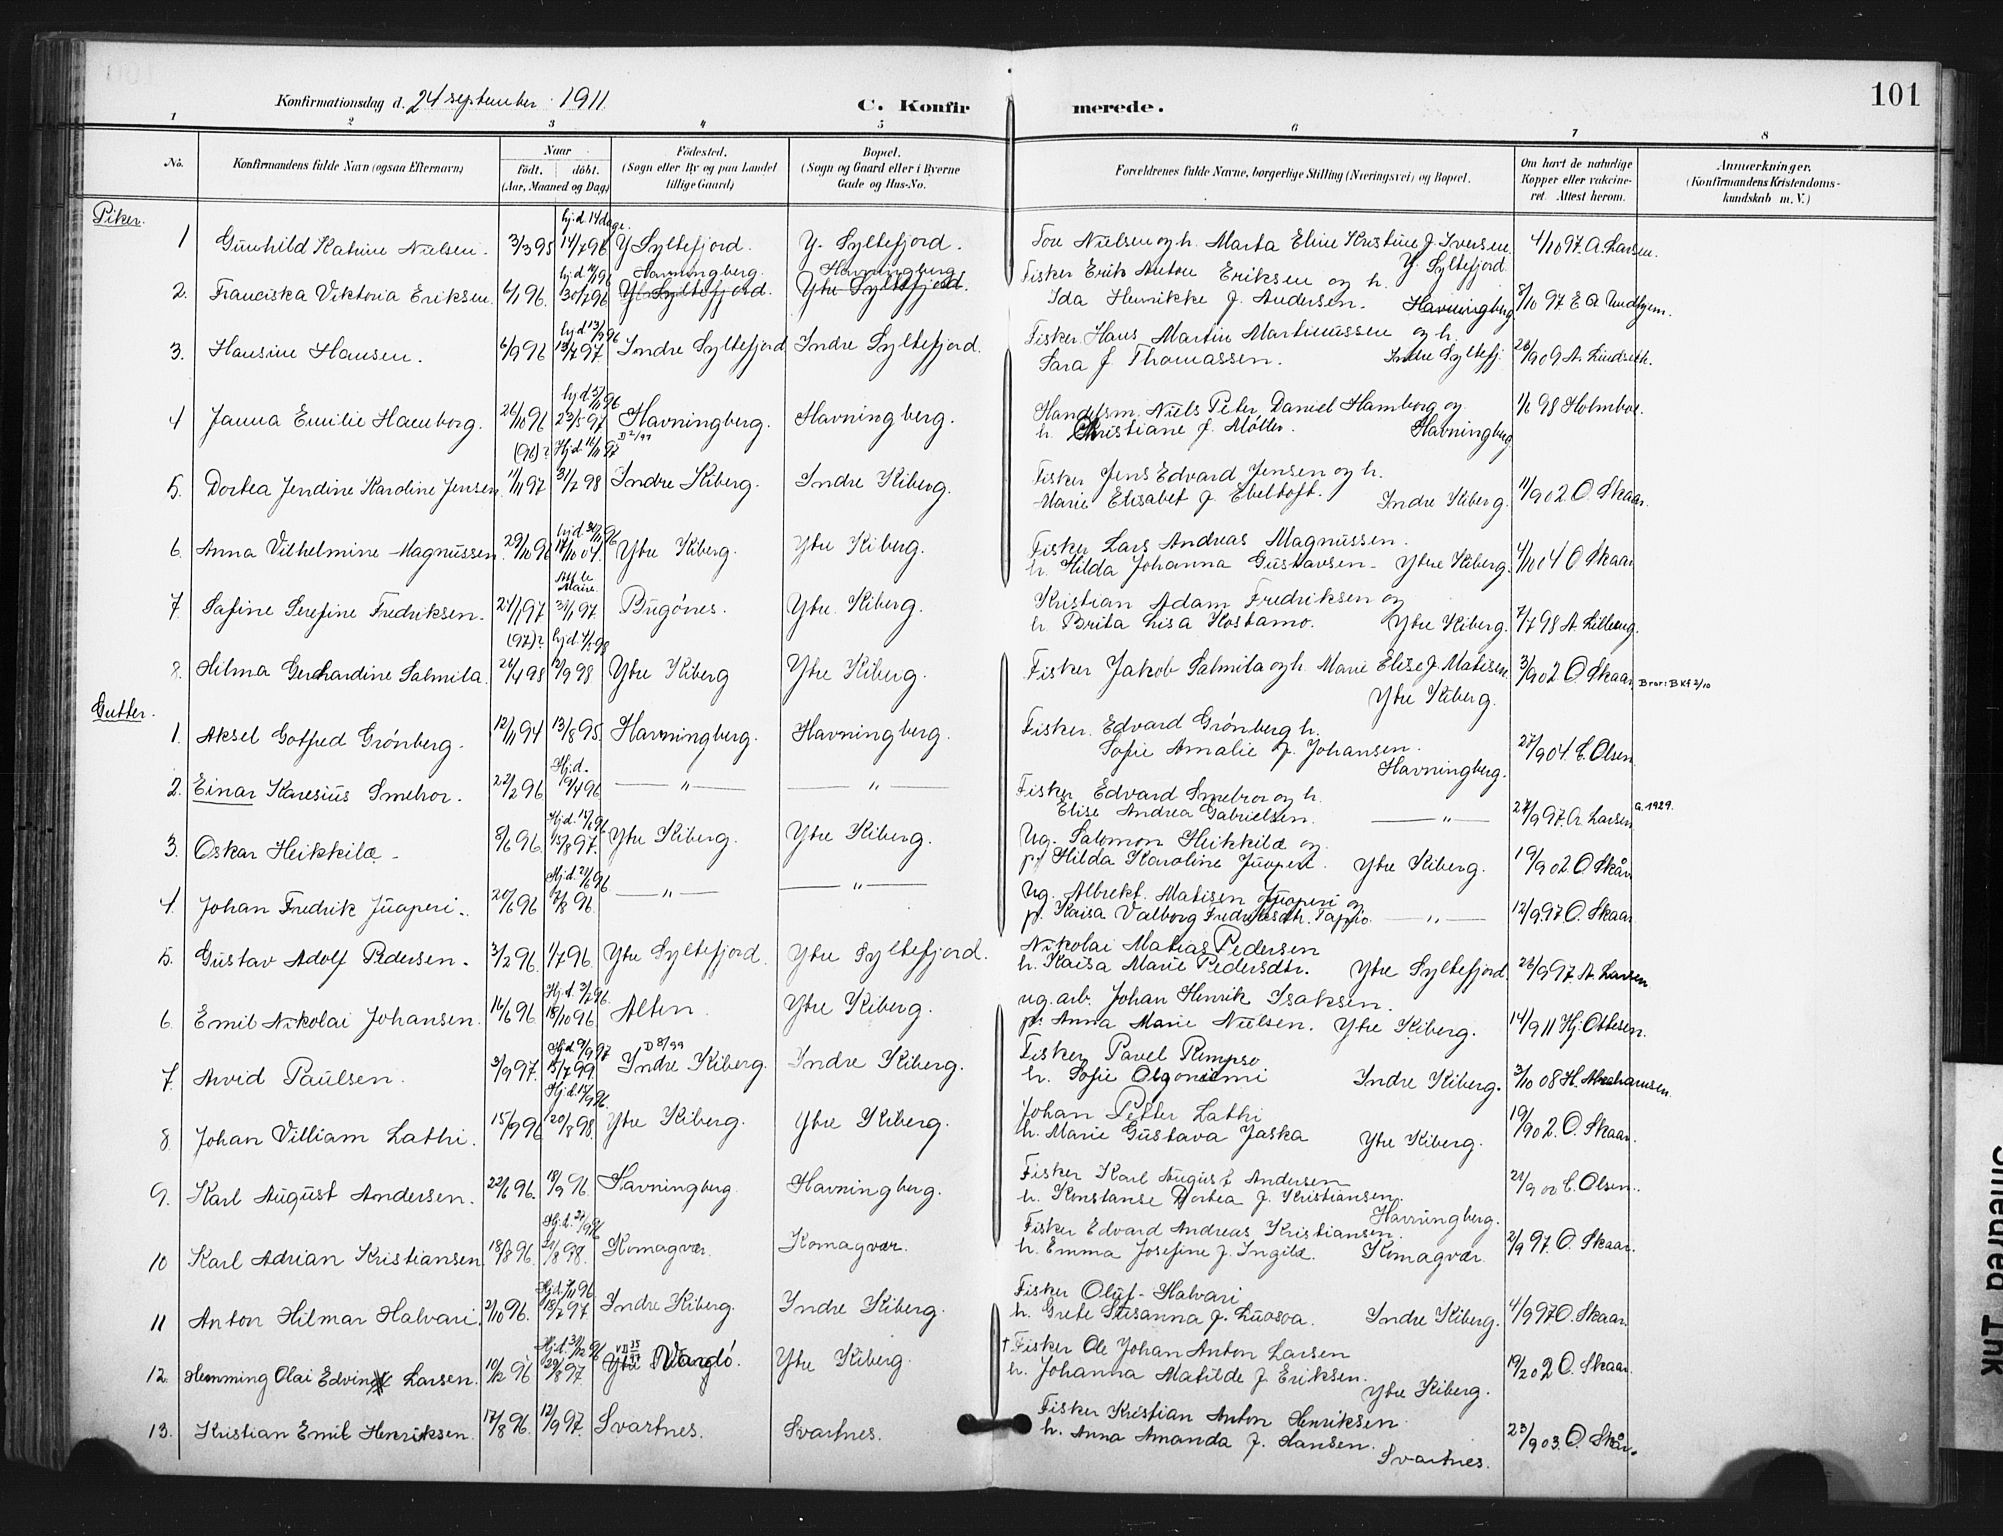 Konfirmationsdag d. 24 september 1911. C. Konfirmerede. 101
1 2 3 4 5 6 7 8
No. Konfirmandens fulde Navn (ogsaa Efternavn) Naar født. døbt. (Aar, Maaned og Dag) Födested. (Sogn eller By og paa Landet tillige Gaard) Bopæl. (Sogn og Gaard eller i Byerne Gade og Hus-No. Forældrenes fulde Navne, borgerlige Stilling (Næringsvei) og Bopæl. Om havt de naturlige Kopper eller vakcineret. Attest herom. Anmærkninger. (Konfirmandens Kristendomskundskab m. V.)
Piker.
hj.d. 14 dage.
1 Gunhild Katrine Nielsen. 3/3 95 14/7 96 Y Syltefjord. Y. Syltefjord. Tor Nielsen og h. Marta Eline Kristine f. Iversen. Y. Syltefjord 4/10 97. A. Larsen.
2. Franciska Viktoria Eriksen. 6/1 96. 30/7 96 Havningberg. Ytre Syltefjord. Havningberg. Ytre Syltefjord. Fisker Erik Anton Eriksen og h.
Ida Henrikke f. Andersen. Havningberg 8/10 97. E A. Undhjem.
hj d 13/9 96
3. Hansine Hansen. 6/9 96 13/7 97. Indre Syltefjord Indre Syltefjord. Fisker Hans Martin Martinussen og h.
Sara f Thomassen. Indre Syltefj. 26/9 09 A. Lindseth.
4 Janna Emilie Hamborg. 26/10 96 23/5 97 Havningberg. Havningberg. Handelsm. Niels Peter Daniel Hamborg og
h. Christiane f. Møller. Havningberg 1/6 98 Holmboe.
(96)? Hj.d. 16/11 97 D 2/99
5. Dortea Jendine Karoline Jensen 11/11 97 31/7 98 Indre Kiberg. Indre Kiberg. Fisker Jens Edvard Jensen og h.
Marie Elisabet f Ebeltoft. Indre Kiberg. 11/9 02 O. Skaar.
6. Anna Vilhelmine Magnussen 29/10 96 Ytre Kiberg. Ytre Kiberg. Fisker Lars Andreas Magnussen.
h. Hilda Johanna Gustavsen Ytre Kiberg. 4/10 04 O Skaar
7. Safine Serefine Fredriksen. Bugönes. Ytre Kiberg. Kristian Adam Fredriksen og
h. Brita Lisa Kostamo. Ytre Kiberg. 7/7 98 A. Lilleeng.
(97)? hj.d. 4/5 98
8. Hilma Gerhardine Salmila. 26/4 98 Ytre Kiberg Ytre Kiberg. Fisker Jakob Salmila og h. Marie Elise f. Matisen
Ytre Kiberg. 3/9 02 O. Skaar. Bror: B Kf 2/10
Gutter.
1. Aksel Gotfred Grönberg. 12/11 94 13/8 95. Havningberg. Havningberg. Fisker Edvard Grönberg h.
Sofie Amalie f. Johansen.
Havningberg. 27/9 04. C. Olsen
Hj.d.
2. Einar Karesius Smelror. 22/2 96 19/4 96 — " — — " — Fisker Edvard Smelror og h.
Elise Andrea Gabrielsen. — " — 27/9 97. A. Larsen G. 1929.
3. Oskar Heikkilæ 8/6 96 15/8 97. Ytre Kiberg. Ytre Kiberg. Ug. Salomon Heikkilæ og
p. Hilda Karoline Juaperi. Ytre Kiberg. 19/9 02. O. Skår
Hj.d. 21/6 96
4. Johan Fredrik Juaperi. 20/6 96 2/8 96. — " — — " — Ug. Albrekt Matisen Juaperi og
p. Kaisa Valborg Fredriksdtr. Tappio. — " — 12/9 97 O. Skaar
5. Gustav Adolf Pedersen. 3/2 96. 1/7 96. Ytre Syltefjord. Ytre Syltefjord. Nikolai Matias Pedersen
h. Kaisa Marie Pedersdtr. Ytre Syltefjord. 26/9 97. A. Larsen
6. Emil Nikolai Johansen. 16/6 96. 18/10 96. Alten. Ytre Kiberg. ug. arb. Johan Henrik Isaksen.
p. Anna Marie Nielsen. Ytre Kiberg. 14/9 11 Hj. Ottesen.
Hj.d. 9/9 97 D 8/99
7. Arvid Paulsen. 3/9 97. 15/7 99. Indre Kiberg. Indre Kiberg. Fisker Pavel Rempso
h. Sofie Olgoniemi Indre Kiberg. 3/10 08 H. Abrahamsen.
8. Johan Villiam Lathi. 15/9 96 20/8 98. Ytre Kiberg. Ytre Kiberg. Johan Petter Lathi
h. Marie Gustava Jaska Ytre Kiberg. 19/9 02. O. Skaar.
9. Karl August Andersen. 22/6 96. 18/9 96. Havningberg. Havningberg. Fisker Karl August Andersen
h. Konstanse Dortea f. Kristiansen.
Havningberg. 21/9 00 C. Olsen.
10 Karl Adrian Kristiansen 18/8 96. 21/8 98. Komagvær. Komagvær. Fisker Edvard Andreas Kristiansen.
h. Emma Josefine f. Ingilæ Komagvær. 2/9 97. O. Skaar.
11 Anton Hilmar Halvari. 2/10 96. 18/7 97. Indre Kiberg. Indre Kiberg. Fisker Oluf Halvari
h. Grete Susanna f. Luosoa. Indre Kiberg. 4/9 97 O. Skaar.
12. Hemming Olai Edvin Larsen. 10/12 96 29/8 97. Vardö. Ytre Kiberg. † Fisker Ole Johan Anton Larsen
h. Johanna Matilde f. Eriksen.
Ytre Kiberg. 19/2 02 O. Skaar.
13. Kristian Emil Henriksen. 17/8 96. 12/9 97. Svartnes. Svartnes. Fisker Kristian Anton Henriksen
h. Anna Amanda f. Hansen.
Svartnes. 23/9 03. O. Skår.